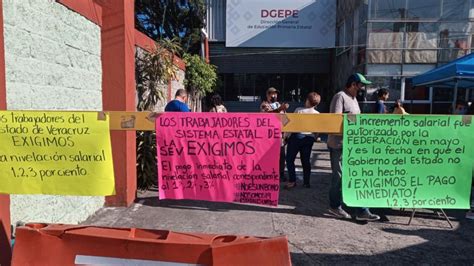 DGEPE
Dirección General
de Educación Primaria Estatal
Trabajadores del
Estado de Veracruz
EXIGIMOS
la nivelación salarial
1,2,3 por ciento
LOS TRABAJADORES
DEL SISTEMA ESTATAL DE
SEV EXIGIMOS
El pago inmediato de la
nivelación correspondiente
al 1, 2, y 3%
#DESUNBONO
incremento salarial fue
autorizado por la FEDERACIÓN
en mayo
y es la fecha en que el
Gobierno del Estado no
lo ha hecho
¡EXIGIMOS EL PAGO
INMEDIATO!
1,2,3 por ciento